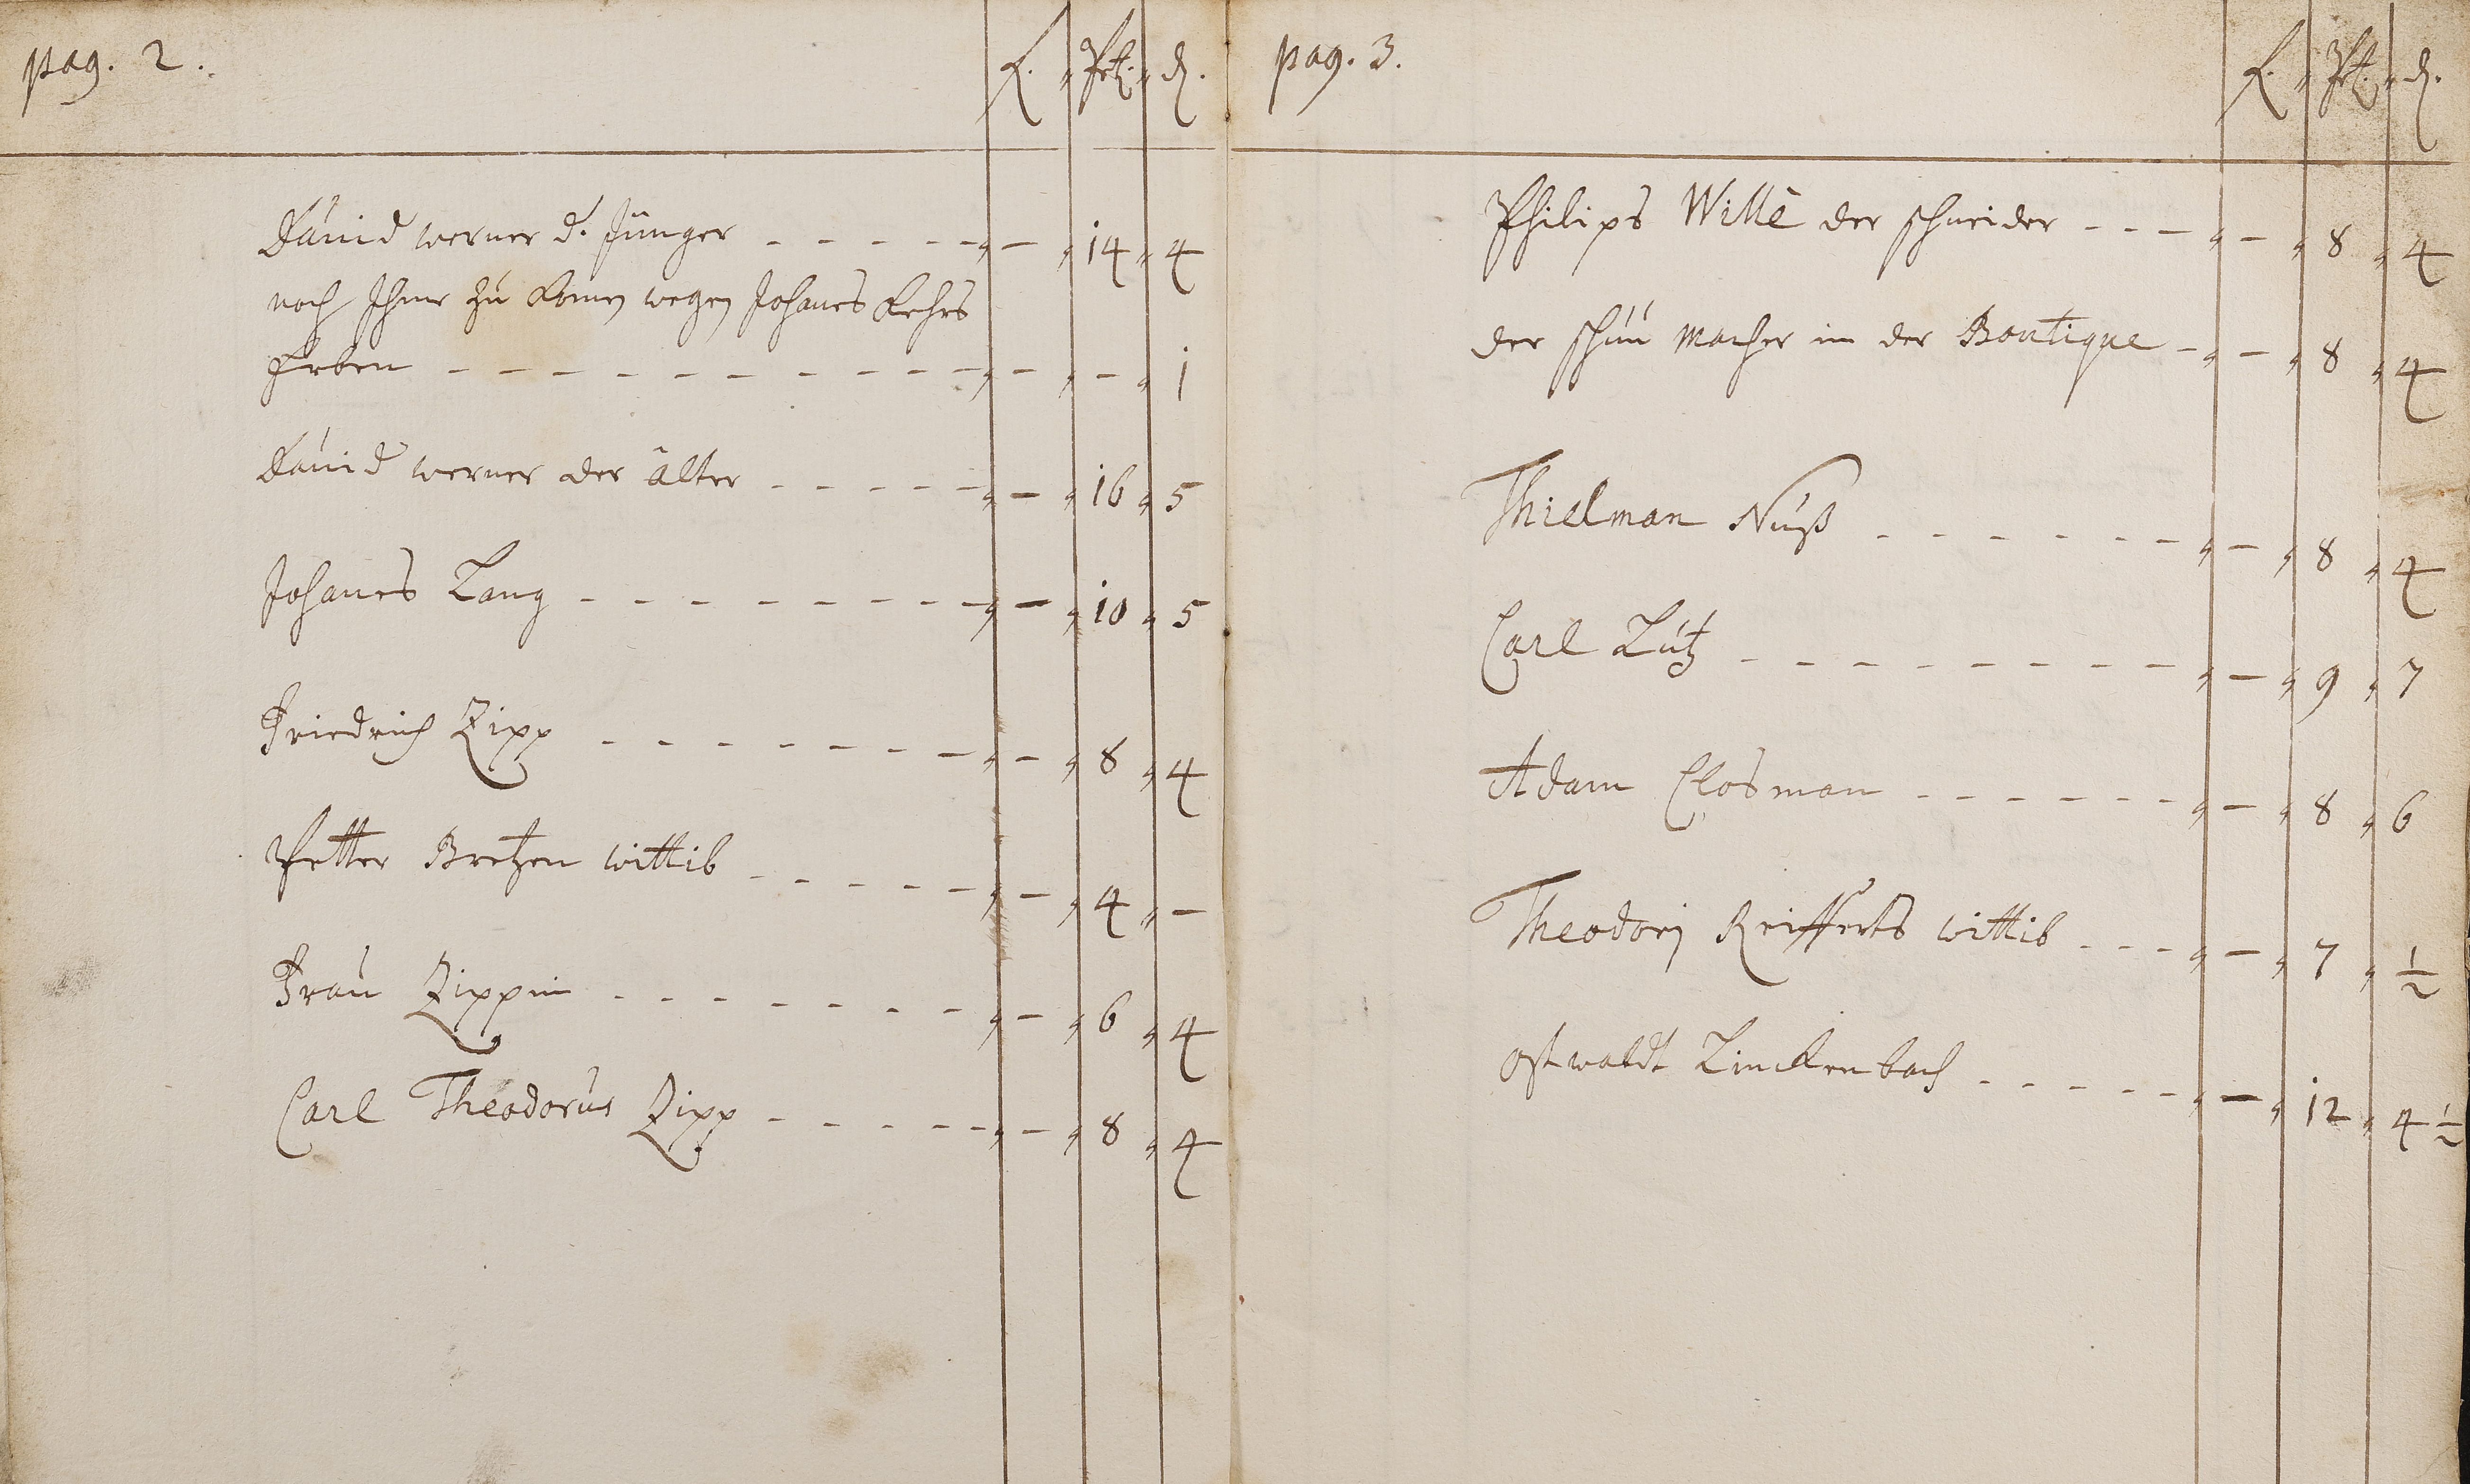 pag. 2.
f. " Bt. " d.
David werner d. Jünger - - - - - " - " 14 " 4
noch Ihme zu komen wegen Johanes Kehrs
Erben - - - - - - - - - - " - " - " 1
David werner der älter - - - - - " - " 16 " 5
Johanes Lang - - - - - - - - " - " 10 " 5
Friedrich Zipp - - - - - - - " - " 8 " 4
Petter Bretzen wittib - - - - - " - " 4 " -
Frau Zippin - - - - - - - " - " 6 " 4
Carl Theodorus Zipp - - - - - " - " 8 " 4
pag. 3.
f. " Bt. " d.
Philips Wille der schneider - - - " - " 8 " 4
der schuu Macher in der Boutique - " - " 8 " 4
Thielman Nuß - - - - - - " - " 8 " 4
Carl Lutz - - - - - - - - " - " 9 " 7
Adam Closman - - - - - - " - " 8 " 6
Theodorj Reifferts wittib - - - " - " 7 " ½
Ostwaldt Linckenbach - - - - - " - " 12 " 4 ½